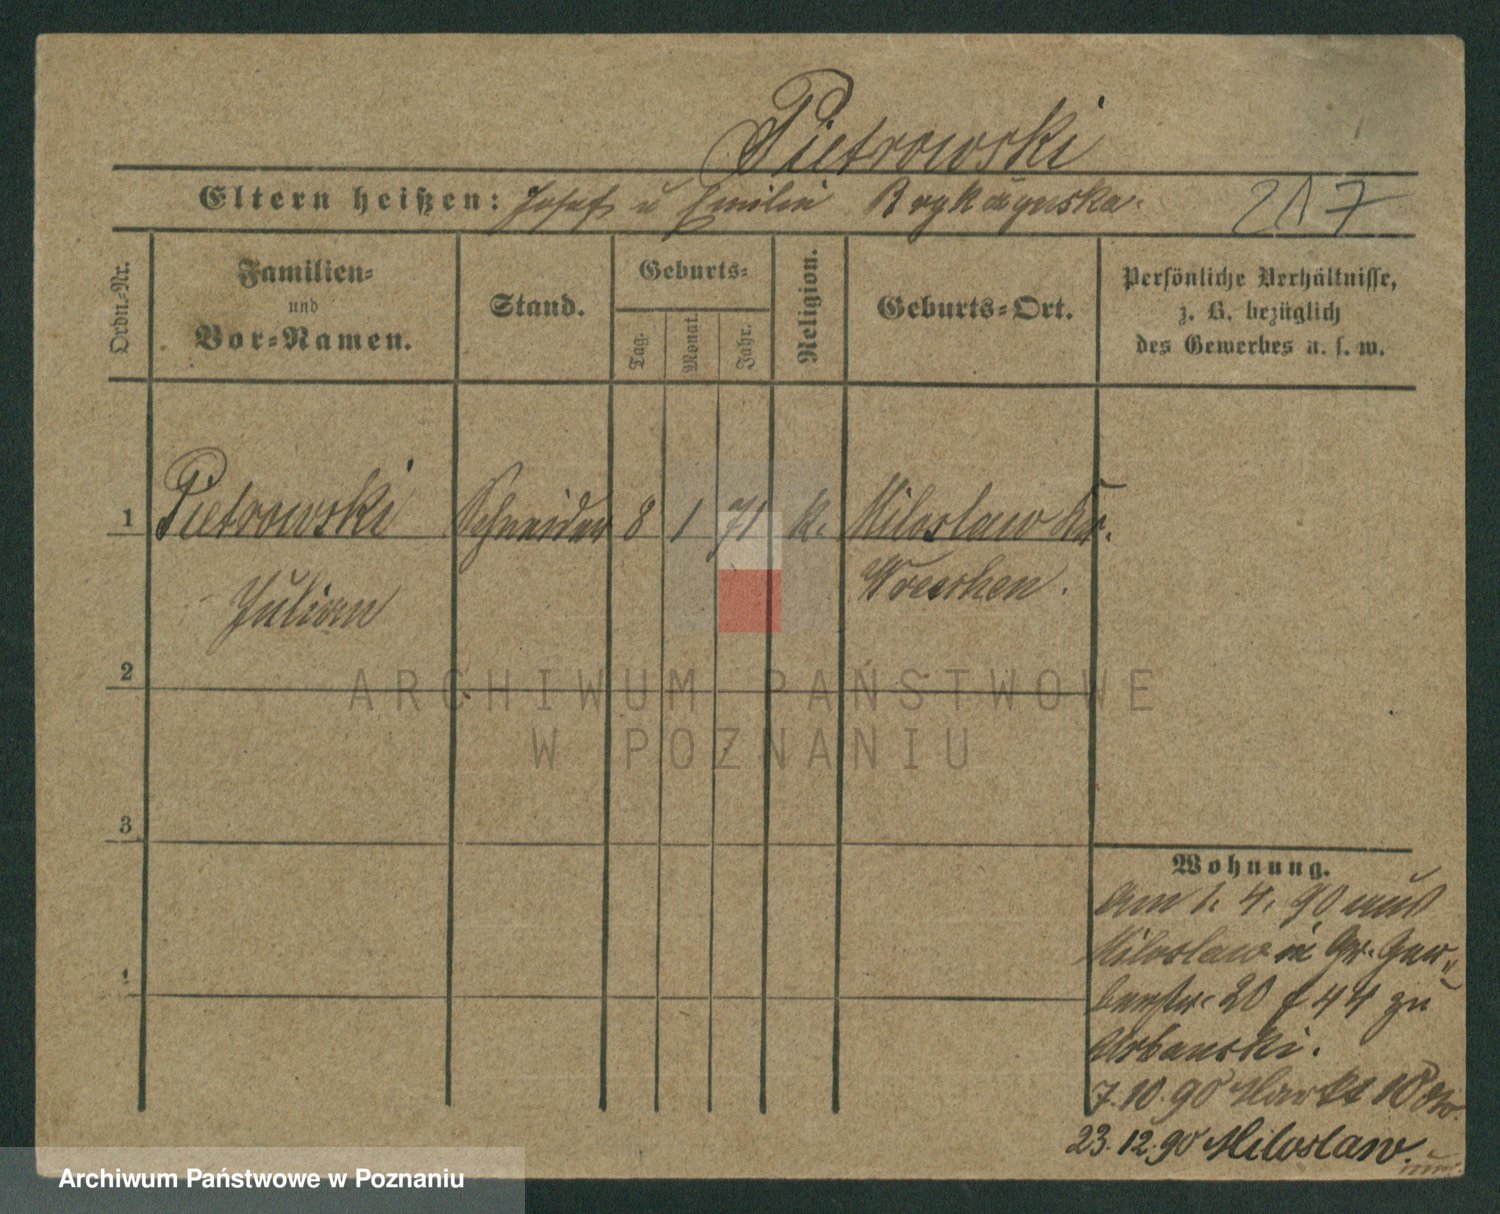 Pietrowski
Eltern heißen: Josef u Emilie
207
Ordn.-Nr.
Familien-
und
Vor-Namen.
Stand.
Geburts-
Tag.
Monat.
Jahr.
Religion.
Geburts-Ort.
Persönliche Verhältnisse,
z. B. bezüglich
des Gewerbes u. s. w.
1 Pietrowski Schneider 8 1 71 k. Miloslaw Kr.
Julian Wreschen.
2
ARCHIWUM PAŃSTWOWE
W POZNANIU
3
Wohnung.
Am 1. 4. 90 aus
Miloslaw in Gr. Ger-
berstr. 20 f 44 zu
Urbanski.
7.10.90 Markt 10
23.12.90 Miloslaw.
4
Archiwum Państwowe w Poznaniu